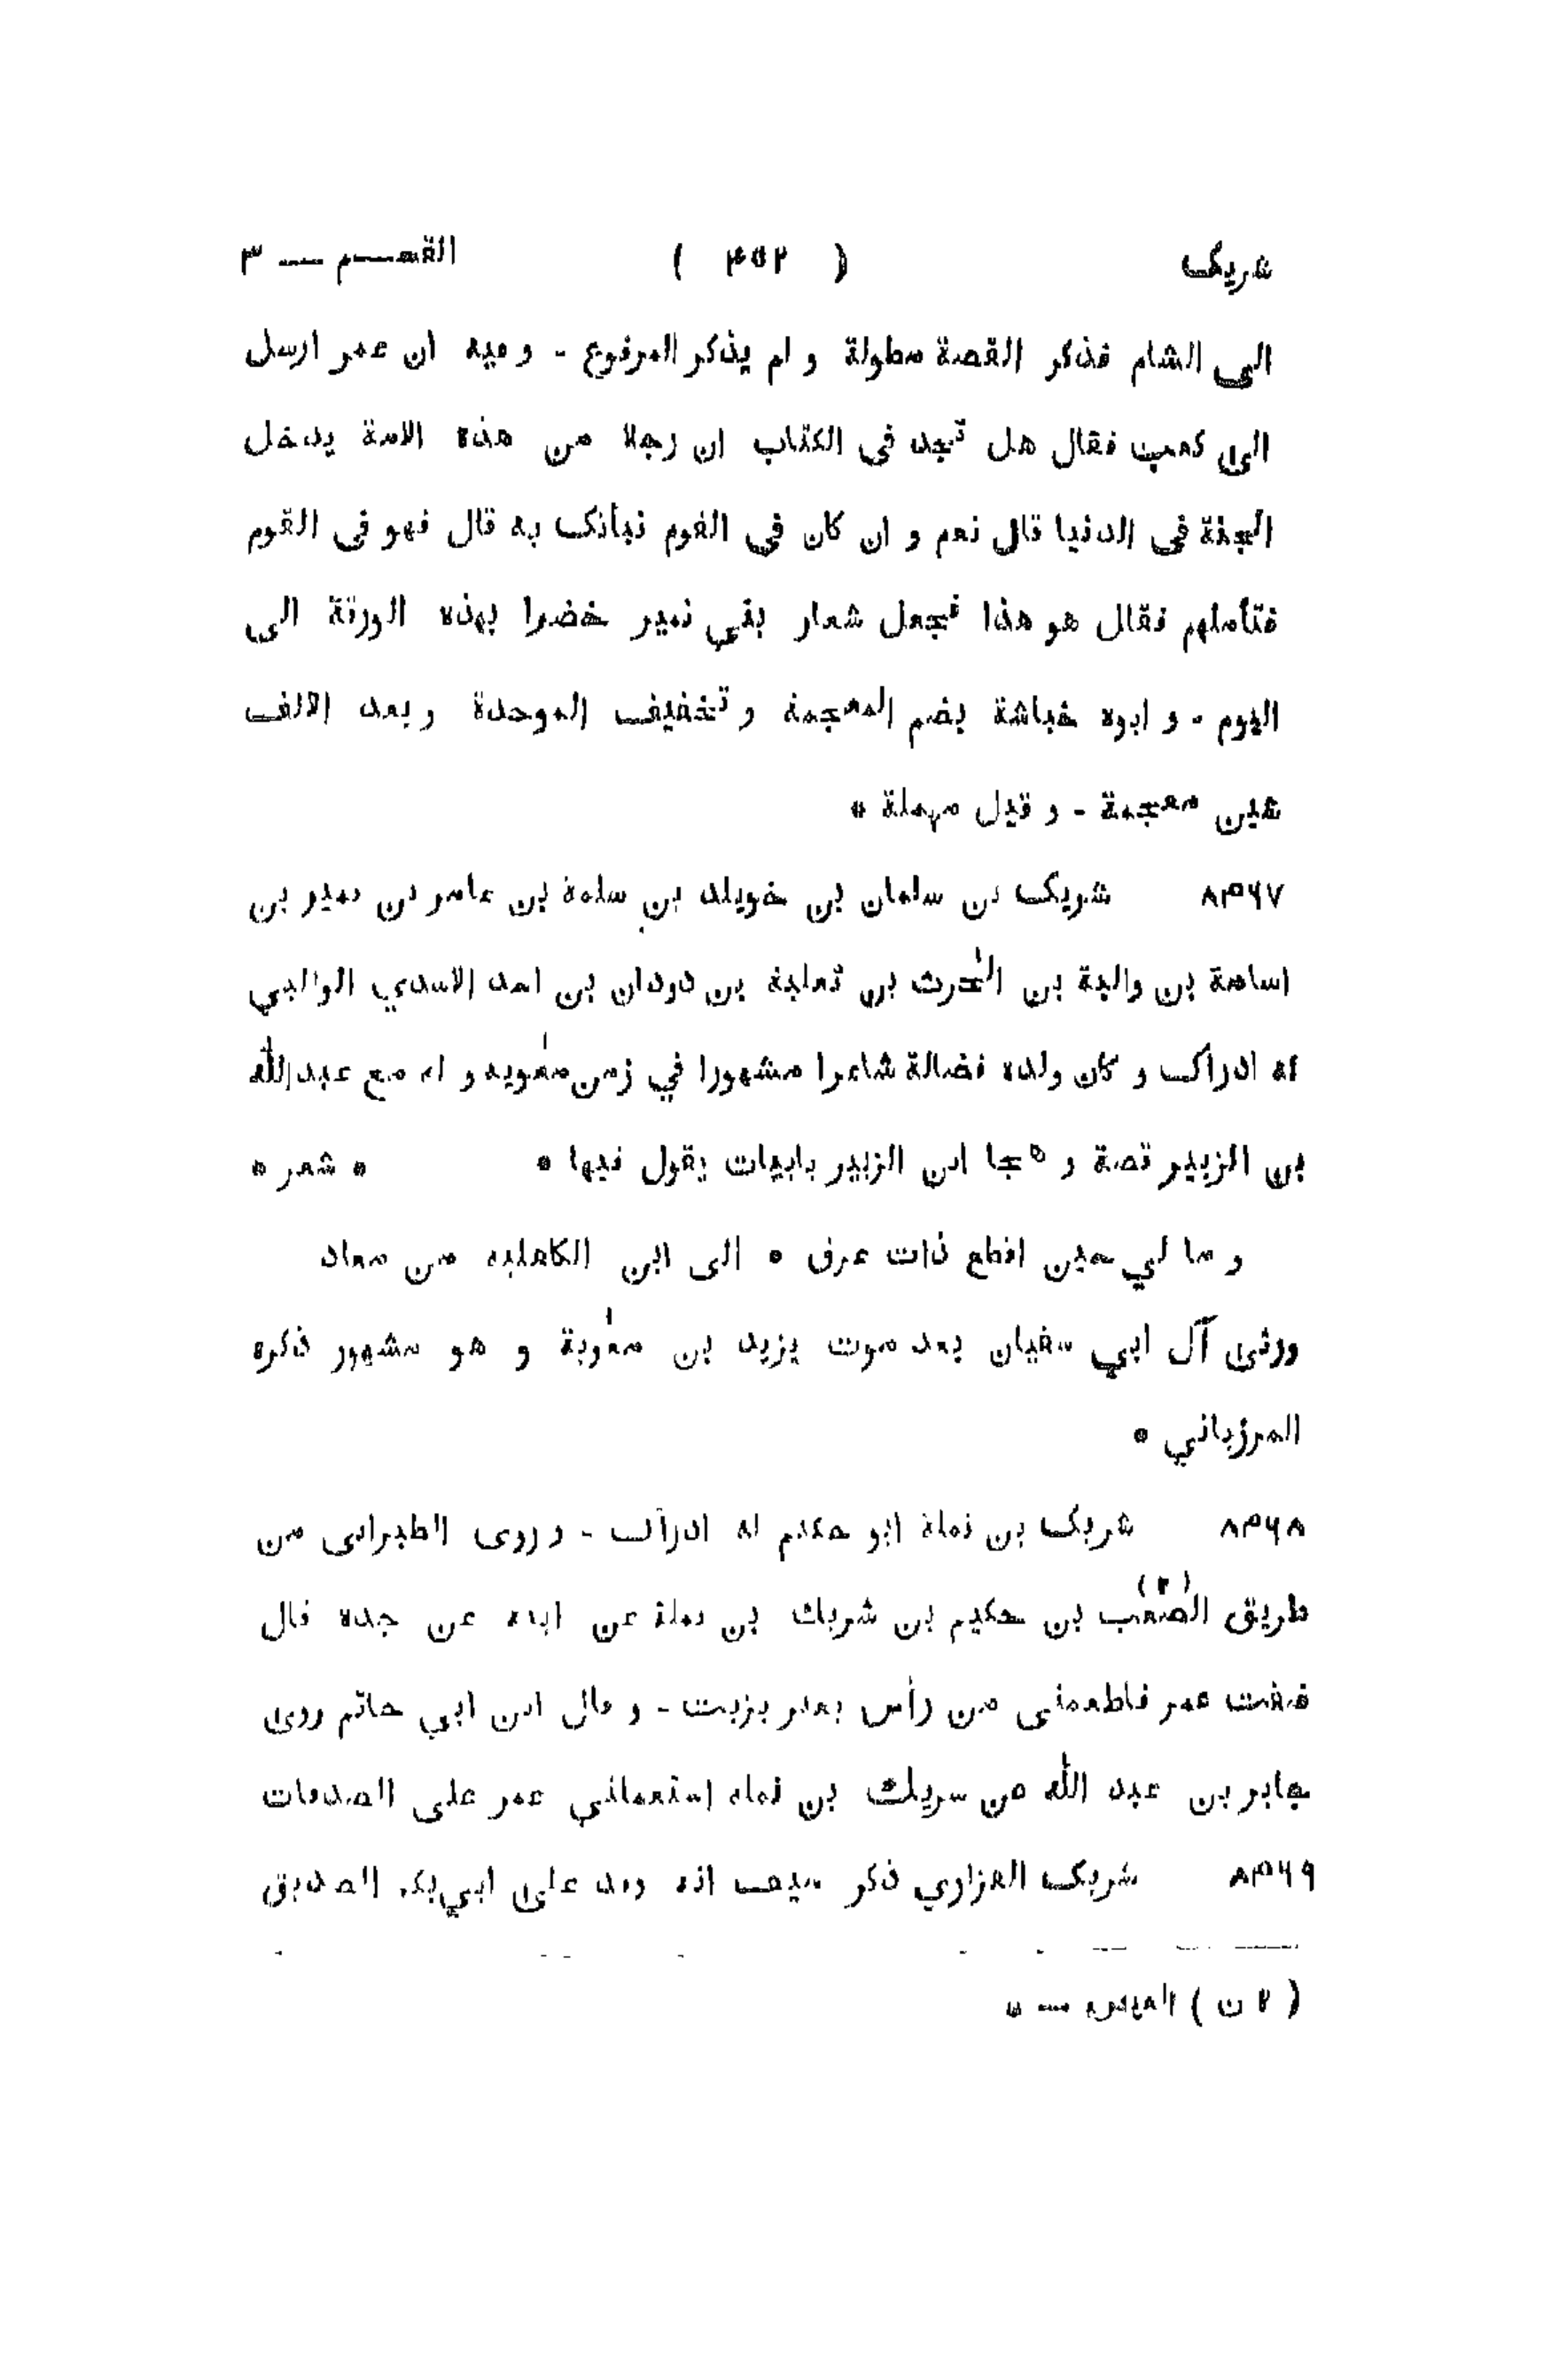 شريک ( ۴۵۲ ) القســـم — ۳
الى الشام فذكر القصة مطولة و لم يذكر المرفوع - و فيه ان عمر ارسل
الى كعب فقال هل تجد في الكتاب ان رجلا من هذه الامة يدخل
الجنة في الدنيا قال نعم و ان كان في القوم نبأتک به قال فهو في القوم
فتأملهم فقال هو هذا فجعل شعار بني نمير خضرا بهذه الورقة الى
اليوم - و ابوه خباشة بضم المعجمة و تخفيف الموحدة و بعد الالف
شين معجمة - و قيل مهملة *
۸۳۶۷ شريک بن سلمان بن خويلد بن سلمة بن عامر بن نمير بن
اسامة بن والبة بن الحٰرث بن ثعلبة بن دودان بن اسد الاسدي الوالبي
له ادراک و كان ولده فضالة شاعرا مشهورا في زمن معٰوية و له مع عبد الله
بن الزبير قصة و هجا ابن الزبير بابيات يقول فيها * * شعر *
و ما لي حين اقطع ذات عرق * الى ابن الكاهلية من معاد
ورثى آل ابي سفيان بعد موت يزيد بن معٰوية و هو مشهور ذكره
المرزباني *
۸۳۶۸ شريک بن نملة ابو حكيم له ادراک - و روى الطبراني من
طريق الصقعب (۲) بن حكيم بن شريك بن نملة عن ابيه عن جده قال
ضفت عمر فاطعمني من رأس بعير بزيت - و قال ابن ابي حاتم روى
جابر بن عبد الله عن شريك بن نملة استعملني عمر على الصدقات
۸۳۶۹ شريک الفزاري ذكر سيف انه وفد على ابي بكر الصديق
( ۲ ن ) — *